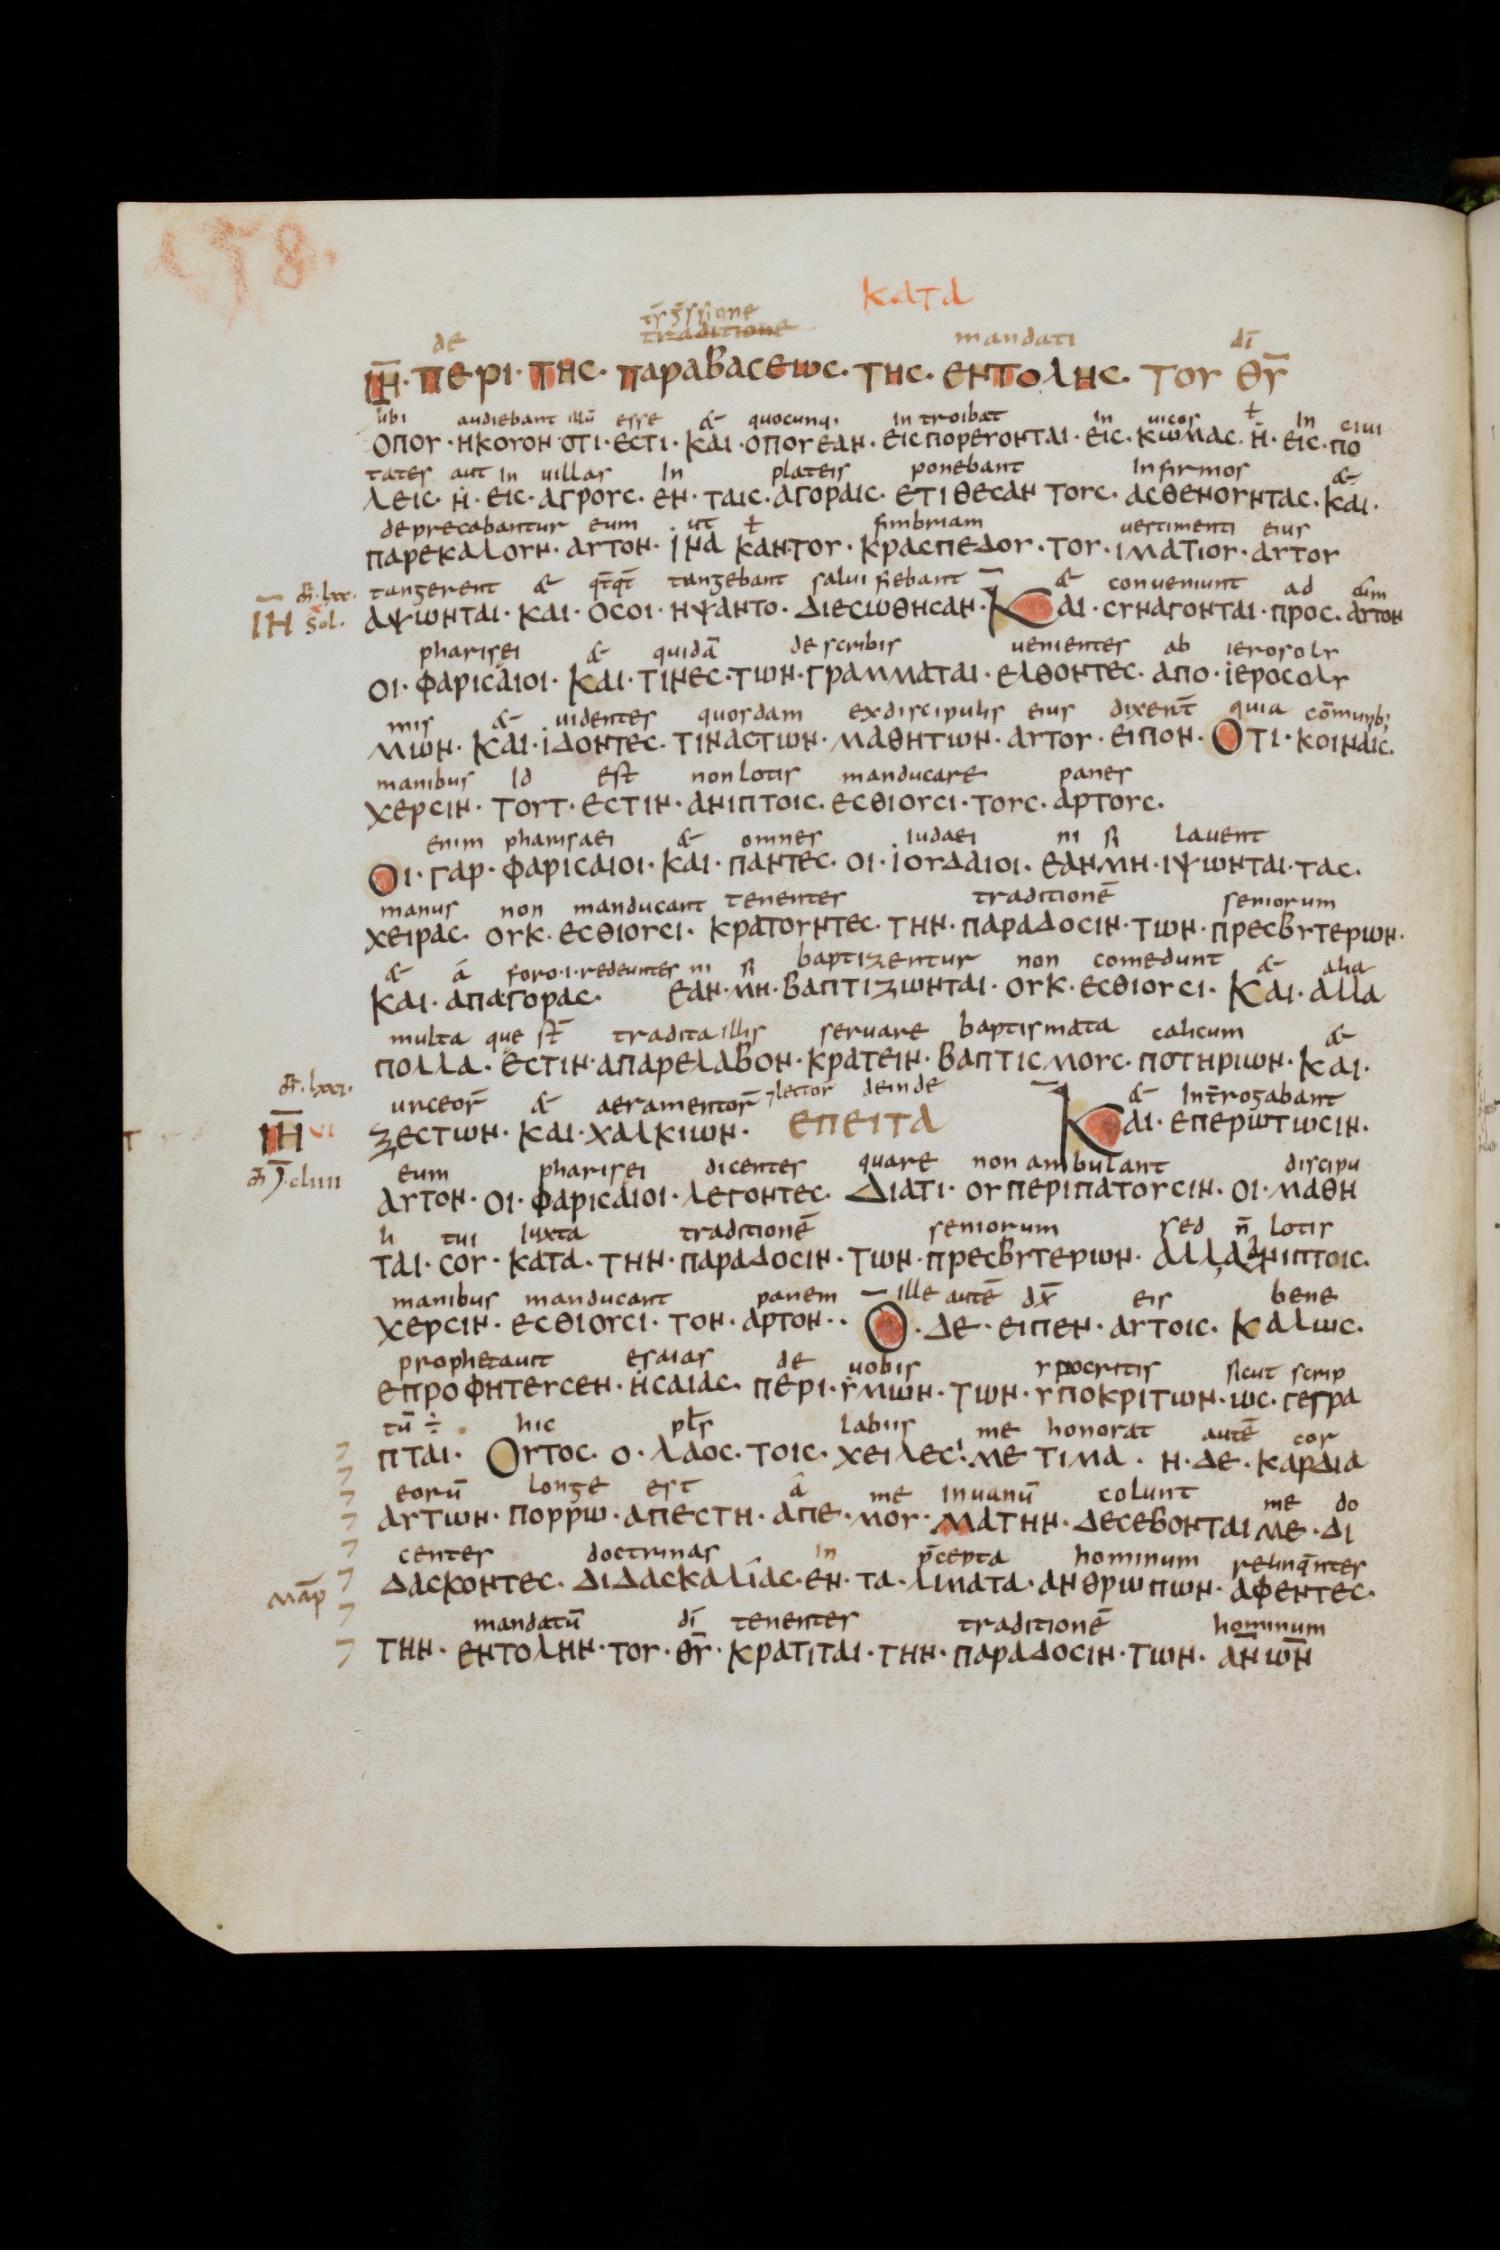 158.
ΚΑΤΑ
tr̄gssione
de traditione mandati dī
ῙΗ̄· ΠΕΡΙ· ΤΗC· ΠΑΡΑΒΑCΕΩC· ΤΗC· ΕΝΤΟΛΗC· ΤΟΥ Θ̄Ῡ
ubi audiebant illū esse & quocunq; introibat in uicos ł in ciui
ΟΠΟΥ· ΗΚΟΥΟΝ· ΟΤΙ· ΕCΤΙ· ΚΑΙ· ΟΠΟΥ ΕΑΝ· ΕΙCΠΟΡΕΥΟΝΤΑΙ· ΕΙC· ΚΩΜΑC· Η· ΕΙC· ΠΟ
tates aut in uillas in plateis ponebant infirmos &
ΛΕΙC· Η· ΕΙC· ΑΓΡΟΥC· ΕΝ· ΤΑΙC· ΑΓΟΡΑΙC· ΕΤΙΘΕCΑΝ ΤΟΥC· ΑCΘΕΝΟΥΝΤΑC· ΚΑΙ·
deprecabantur eum ut ł fimbriam uestimenti eius
ΠΑΡΕΚΑΛΟΥΝ· ΑΥΤΟΝ· ΙΝΑ ΚΑΝ·ΤΟΥ· ΚΡΑCΠΕΔΟΥ· ΤΟΥ· ΙΜΑΤΙΟΥ· ΑΥΤΟΥ
m̄r· lxx· tangerent & q̄tq̄t tangebant salui fiebant & conueniunt ad eum
ῙΗ sol· ΑΨΩΝΤΑΙ· ΚΑΙ· ΟCΟΙ· ΗΨΑΝΤΟ· ΔΙΕCΩΘΗCΑΝ· ΚΑΙ· CΥΝΑΓΟΝΤΑΙ· ΠΡΟC· ΑΥΤΟΝ
pharisei & quidā de scribis uenientes ab ierosoly
ΟΙ· ΦΑΡΙCΑΙΟΙ· ΚΑΙ· ΤΙΝΕC· ΤΩΝ· ΓΡΑΜΜΑΤΑΙ· ΕΛΘΟΝΤΕC· ΑΠΟ· ΙΕΡΟCΟΛΥ
mis & uidentes quosdam ex discipulis eius dixer̄t quia cōmunib;
ΜΩΝ· ΚΑΙ· ΙΔΟΝΤΕC· ΤΙΝΑCΤΩΝ· ΜΑΘΗΤΩΝ· ΑΥΤΟΥ· ΕΙΠΟΝ· ΟΤΙ· ΚΟΙΝΑΙC·
manibus id est non lotis manducare panes
ΧΕΡCΙΝ· ΤΟΥΤ· ΕCΤΙΝ· ΑΝΙΠΤΟΙC· ΕCΘΙΟΥCΙ· ΤΟΥC· ΑΡΤΟΥC·
enim pharisaei & omnes iudaei ni si lauent
ΟΙ· ΓΑΡ· ΦΑΡΙCΑΙΟΙ· ΚΑΙ· ΠΑΝΤΕC· ΟΙ· ΙΟΥΔΑΙΟΙ· ΕΑΝΜΗ· ΙΨΩΝΤΑΙ· ΤΑC·
manus non manducant tenentes traditionē seniorum
ΧΕΙΡΑC· ΟΥΚ· ΕCΘΙΟΥCΙ· ΚΡΑΤΟΥΝΤΕC· ΤΗΝ· ΠΑΡΑΔΟCΙΝ· ΤΩΝ· ΠΡΕCΒΥΤΕΡΩΝ·
& á foro·i·redeuntes ni si baptizentur non comedunt & alia
ΚΑΙ· ΑΠΑΓΟΡΑC· ΕΑΝ· ΜΗ· ΒΑΠΤΙΖΩΝΤΑΙ· ΟΥΚ· ΕCΘΙΟΥCΙ· ΚΑΙ· ΑΛΛΑ
multa que st̄ tradita illis seruare baptismata calicum &
ΠΟΛΛΑ· ΕCΤΙΝ· ΑΠΑΡΕΛΑΒΟΝ· ΚΡΑΤΕΙΝ· ΒΑΠΤΙCΜΟΥC· ΠΟΤΗΡΙΩΝ· ΚΑΙ·
m̄r· lxxi· urceor̄ & aeramentor̄ ⁊lector̄ deinde & int̄rogabant
ῙΗ̄ VI ΖΕCΤΩΝ· ΚΑΙ· ΧΑΛΚΙΩΝ· ΕΠΕΙΤΑ ΚΑΙ· ΕΠΕΡΩΤΩCΙΝ·
eum pharisei dicentes quare non ambulant discipu
ΑΥΤΟΝ· ΟΙ· ΦΑΡΙCΑΙΟΙ· ΛΕΓΟΝΤΕC· ΔΙΑΤΙ· ΟΥ ΠΕΡΙΠΑΤΟΥCΙΝ· ΟΙ· ΜΑΘΗ
li tui iuxta traditionē seniorum sed n̄ lotis
ΤΑΙ· CΟΥ· ΚΑΤΑ· ΤΗΝ· ΠΑΡΑΔΟCΙΝ· ΤΩΝ· ΠΡΕCΒΥΤΕΡΩΝ· ΑΛΛΑ ΑΝΙΠΤΟΙC·
manibus manducant panem ille autē dx̄ eis bene
ΧΕΡCΙΝ· ΕCΘΙΟΥCΙ· ΤΟΝ· ΑΡΤΟΝ·· Ο· ΔΕ· ΕΙΠΕΝ· ΑΥΤΟΙC· ΚΑΛΩC·
prophetauit esaias de uobis ypocritis sicut scrip
ΕΠΡΟΦΗΤΕΥCΕΝ· ΗCΑΙΑC· ΠΕΡΙ· ΥΜΩΝ· ΤΩΝ· ΥΠΟΚΡΙΤΩΝ· ΩC· ΓΕΓΡΑ
tū ÷ hic pl̄s labiis me honorat autē cor
ΠΤΑΙ· ΟΥΤΟC· Ο· ΛΑΟC· ΤΟΙC· ΧΕΙΛΕCΙ· ΜΕ ΤΙΜΑ· Η· ΔΕ· ΚΑΡΔΙΑ
eorū longe est á me in uanū colunt me do
ΑΥΤΩΝ· ΠΟΡΡΩ· ΑΠΕCΤΗ· ΑΠΕ· ΜΟΥ· ΜΑΤΗΝ· ΔΕCΕΒΟΝΤΑΙ ΜΕ· ΔΙ
centes doctrinas in p̄cepta hominum relinq̄ntes
ΔΑCΚΟΝΤΕC· ΔΙΔΑCΚΑΛΙΑC· ΕΝ· ΤΑ· ΛΜΑΤΑ· ΑΝΘΡΩΠΩΝ· ΑΦΕΝΤΕC·
mandatū dī tenentes traditionē hominum
ΤΗΝ· ΕΝΤΟΛΗΝ· ΤΟΥ· Θ̄Ῡ· ΚΡΑΤΙΤΑΙ· ΤΗΝ· ΠΑΡΑΔΟCΙΝ· ΤΩΝ· ΑΝ̄ΩΝ̄